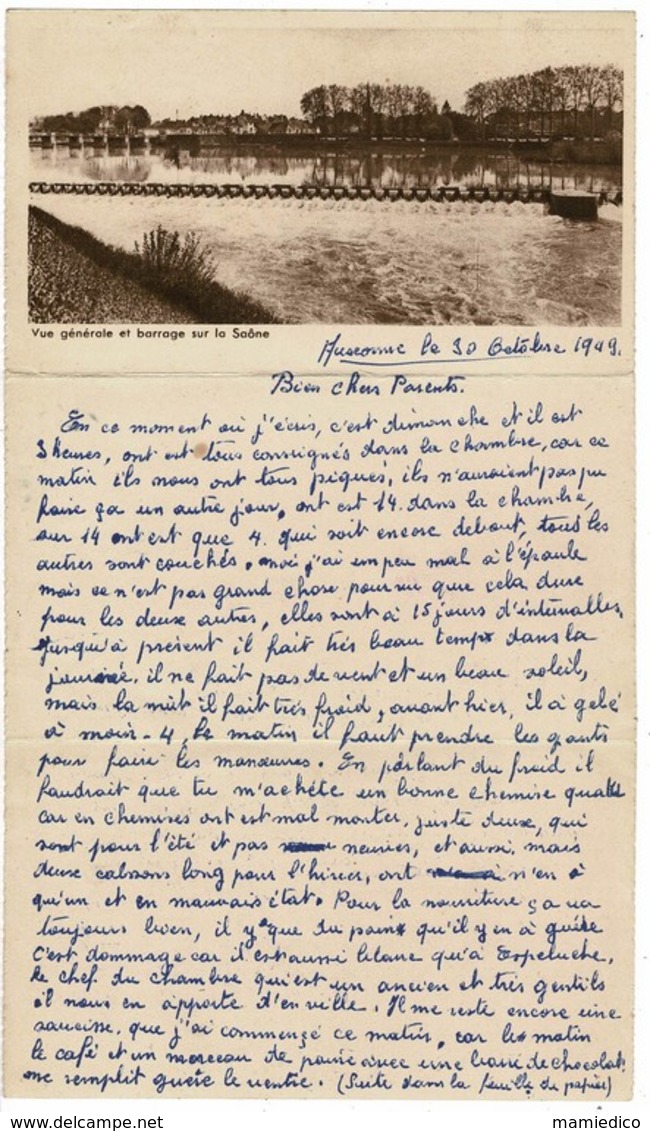 Vue générale et barrage sur la Saône
Auxonne le 30 Octobre 1949.
Bien chers Parents.
En ce moment où j'écris, c'est dimanche et il est
3 heures, ont est tous consignés dans la chambre, car ce
matin ils nous ont tous piqués, ils n'auroient pas pu
faire ça un autre jour, ont est 14 dans la chambre,
sur 14 ont est que 4 qui soit encore debout, tous les
autres sont couchés. moi j'ai un peu mal à l'épaule
mais ce n'est pas grand chose pourvu que cela dure
pour les deux autres, elles sont à 15 jours d'intervalles,
Jusqu'à présent il fait très beau temps dans la
journée, il ne fait pas de vent et un beau soleil,
mais la nuit il fait très froid, avant hier, il a gelé
à moin - 4, le matin il faut prendre les gants
pour faire les manœuvres. En parlant du froid il
faudrait que tu m'achète un bonne chemise
car en chemises ont est mal monter, juste deux, qui
sont pour l'été et pas neuves, et aussi mais
deux calsons long pour l'hiver, ont n'en à
qu'un et en mauvais état. Pour la nourriture ça va
toujours bien, il y a que du pain qu'il y en à guère
C'est dommage car il est aussi blanc qu'à Espeluche,
le chef du chambre qui est un ancien et très gentils
il nous en apporte d'en ville. Il me reste encore une
saucisse, que j'ai commencé ce matin, car le matin
le café et un morceau de pain avec une barre de chocolat
me remplit guère le ventre. (Suite dans la feuille de papier)
delcampe.net
mamiedico